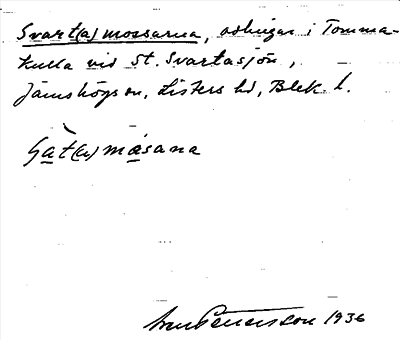 Svart(a)mossarna, odlingar i Tomma-
kulla vid St. Svartasjön,
Jämshögs sn, Listers hd, Blek. l.
måsana
Pettersson 1936